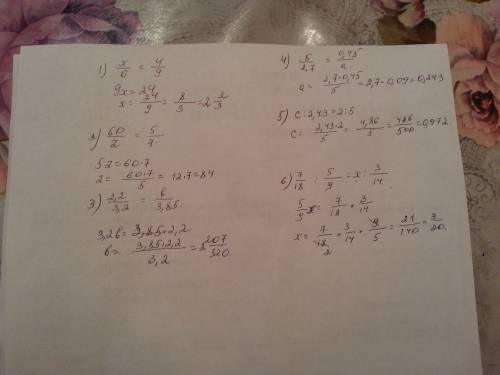 1) x/6 = 4/9
9x = 24
x = 24/9 = 8/3 = 2 2/3
2) 60/z = 5/7
5z = 60·7
z = 60·7/5 = 12·7 = 84
3) 2,2/3,2 = b/3,85
3,2b = 3,85·2,2
b = 3,85·2,2/3,2 = 2 207/320
4) 5/2,7 = 0,45/a
a = 2,7·0,45/5 = 2,7·0,09 = 0,243
5) c : 2,43 = 2 : 5
c = 2,43·2/5 = 4,86/5 = 486/500 = 0,972
6) 7/18 : 5/9 = x : 3/14
5/9 x = 7/18 · 3/14
x = 7/18 · 3/14 · 9/5 = 21/140 = 3/20
2